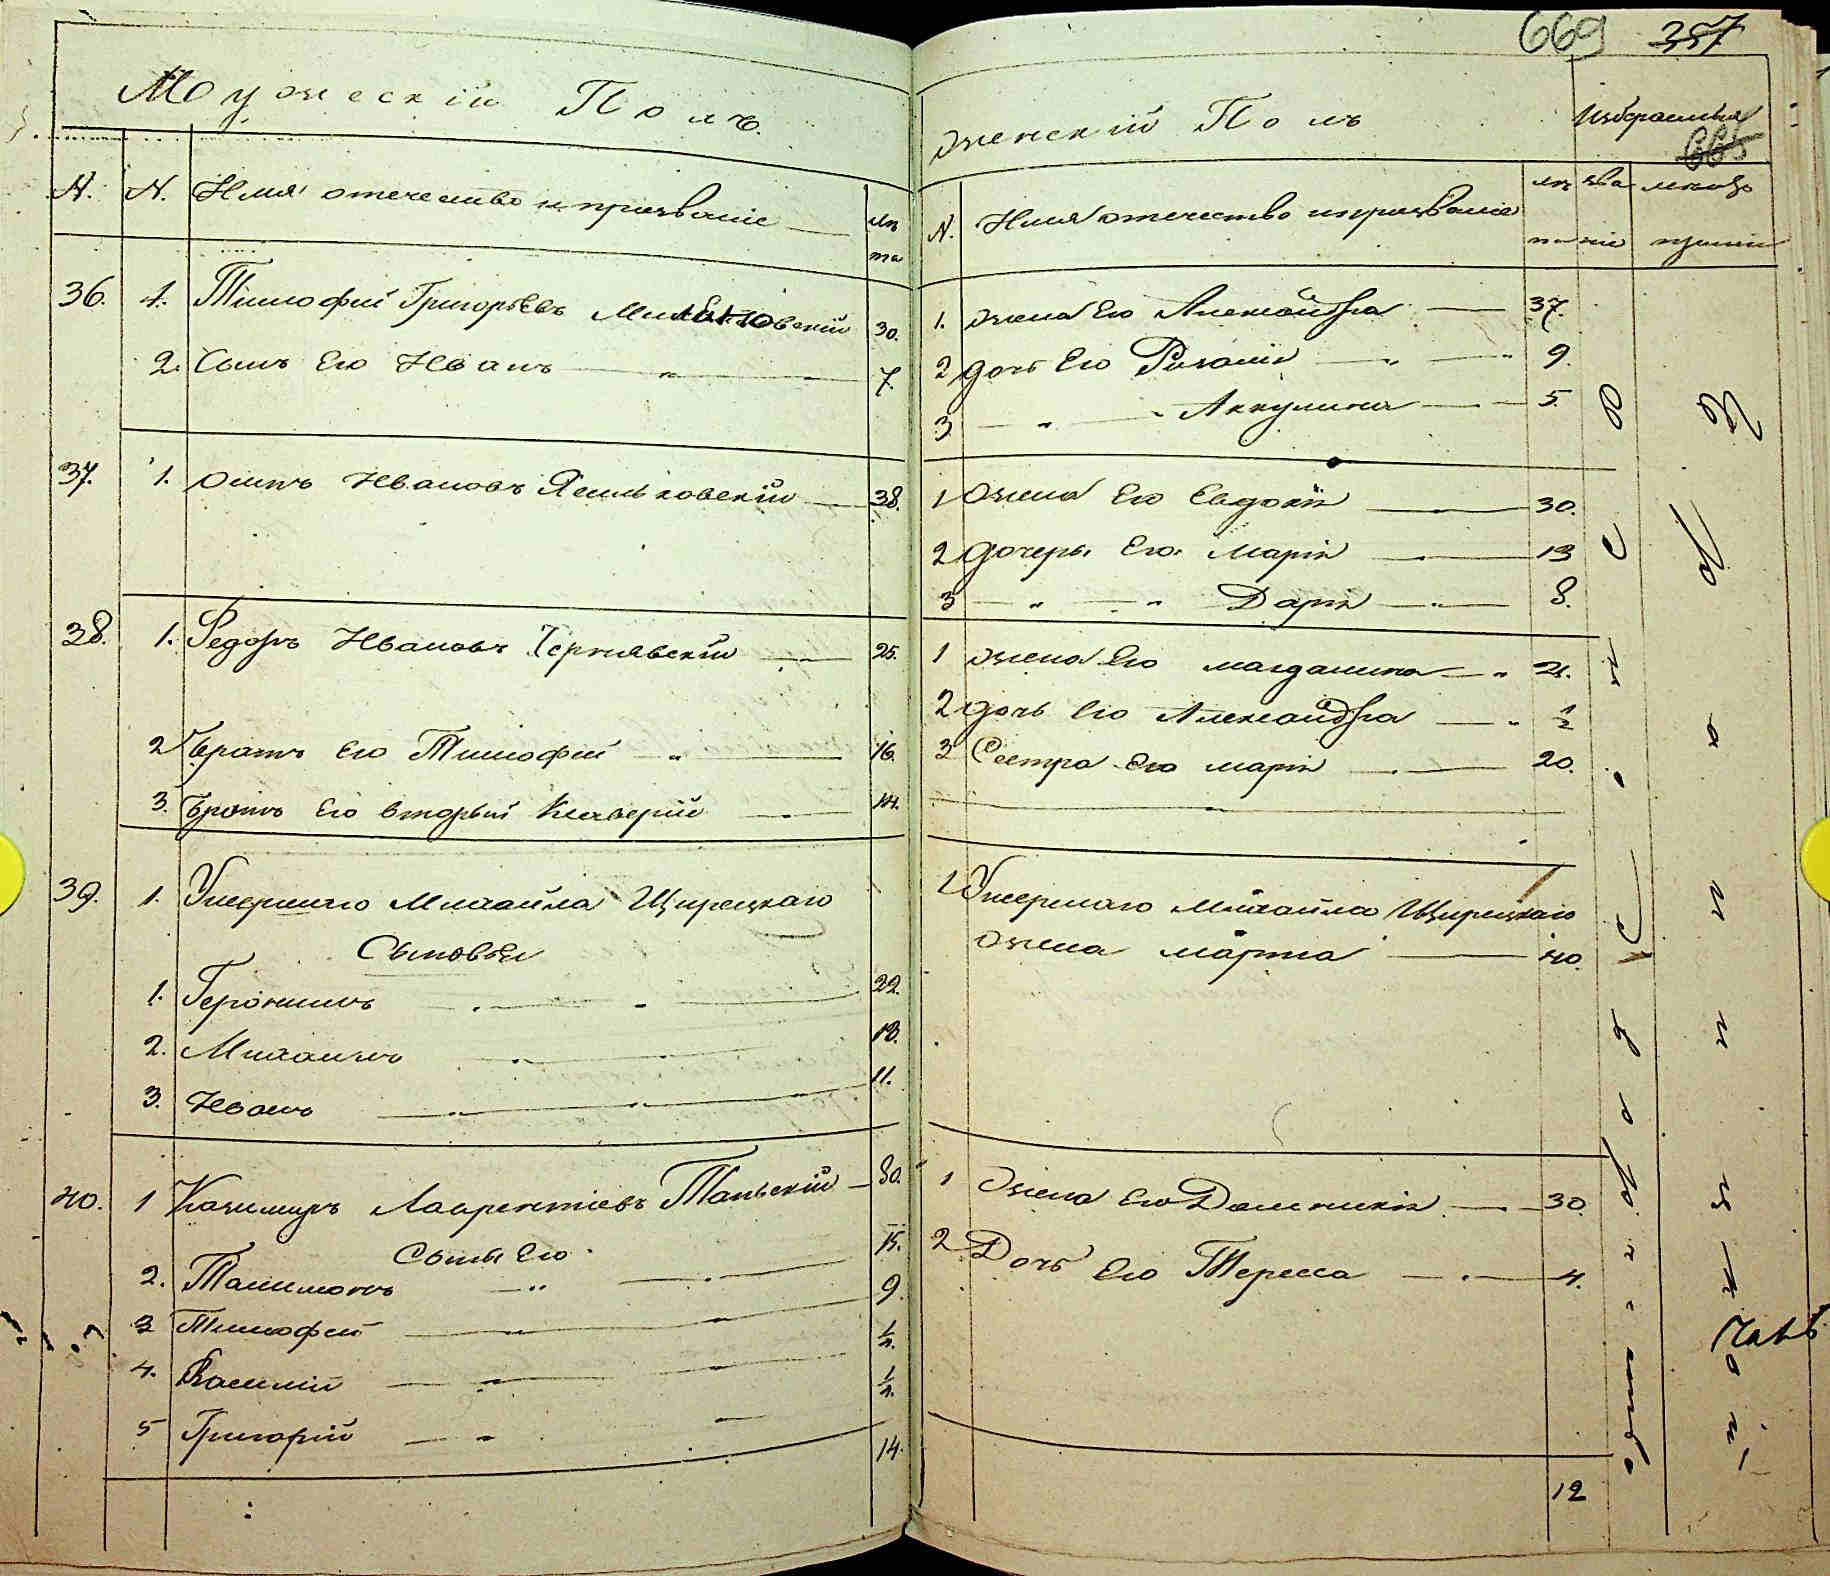 669 357
Мужескій Полъ.
N. N. Имя отечество и прозваніе лѣта
36. 1. Тимофей Григорьевъ 30.
2. Сынъ Его Иванъ 7
37. 1. Осипъ Ивановъ Ясиньковскій 38.
38. 1. Федоръ Ивановъ Чернявскій 25.
2 Братъ Его Тимофей 16.
3. Братъ Его вторый Ксаверій 14.
39. 1. Умершаго Михайла Щирецкаго
Сыновья
1. Геронимъ 22.
2. Михаилъ 18.
3. Иванъ 11.
40. 1 Казимиръ Лаврентіевъ Таньскій 30.
Сыны Его 15.
2. 9.
3 Тимофей 1/2.
4. Василій 1/2.
5 Григорій
14.
женскій Полъ
Избраемыя
665
N. Имя отечество и прозваніе лѣта званіе
1. жена Его Александра 37.
2 дочь Его Розалія 9.
3 " " Аккулина 5.
1 жена Его Евдокія 30.
2 дочеры Его Марія 13
3 " " Дарія 8.
1 жена Его магдалина 21.
2 дочь Его Александра 1/2
3 Сестра Его марія 20.
1 Умершаго Михайла Щирецкаго
жена марта 40.
1 жена Его Доминикія 30.
2 Дочь Его Тересса 4.
12